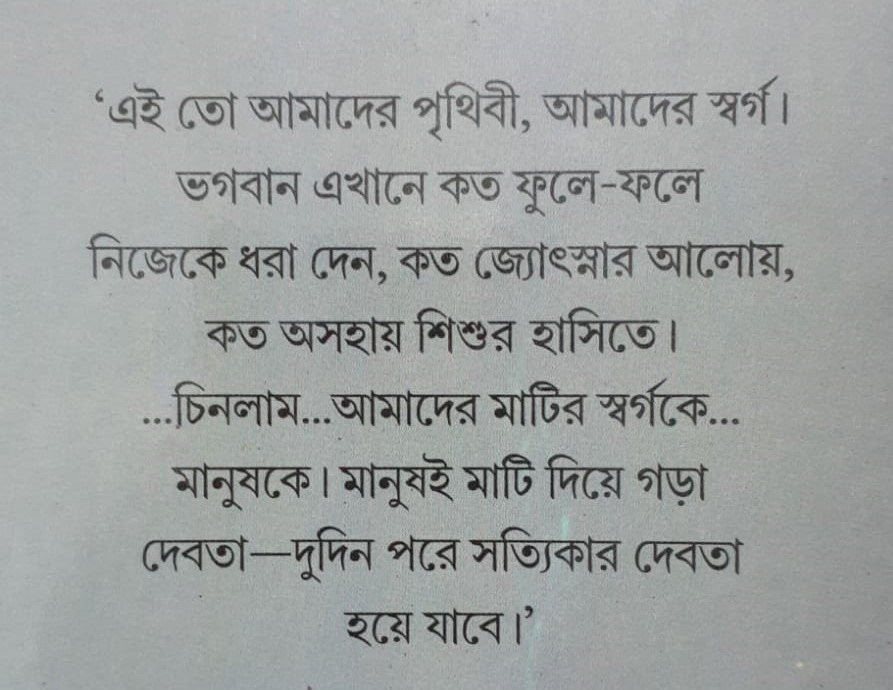 ‘এই তো আমাদের পৃথিবী, আমাদের স্বর্গ।
ভগবান এখানে কত ফুলে-ফলে
নিজেকে ধরা দেন, কত জ্যোৎস্নার আলোয়,
কত অসহায় শিশুর হাসিতে।
...চিনলাম...আমাদের মাটির স্বর্গকে...
মানুষকে। মানুষই মাটি দিয়ে গড়া
দেবতা—দুদিন পরে সত্যিকার দেবতা
হয়ে যাবে।’